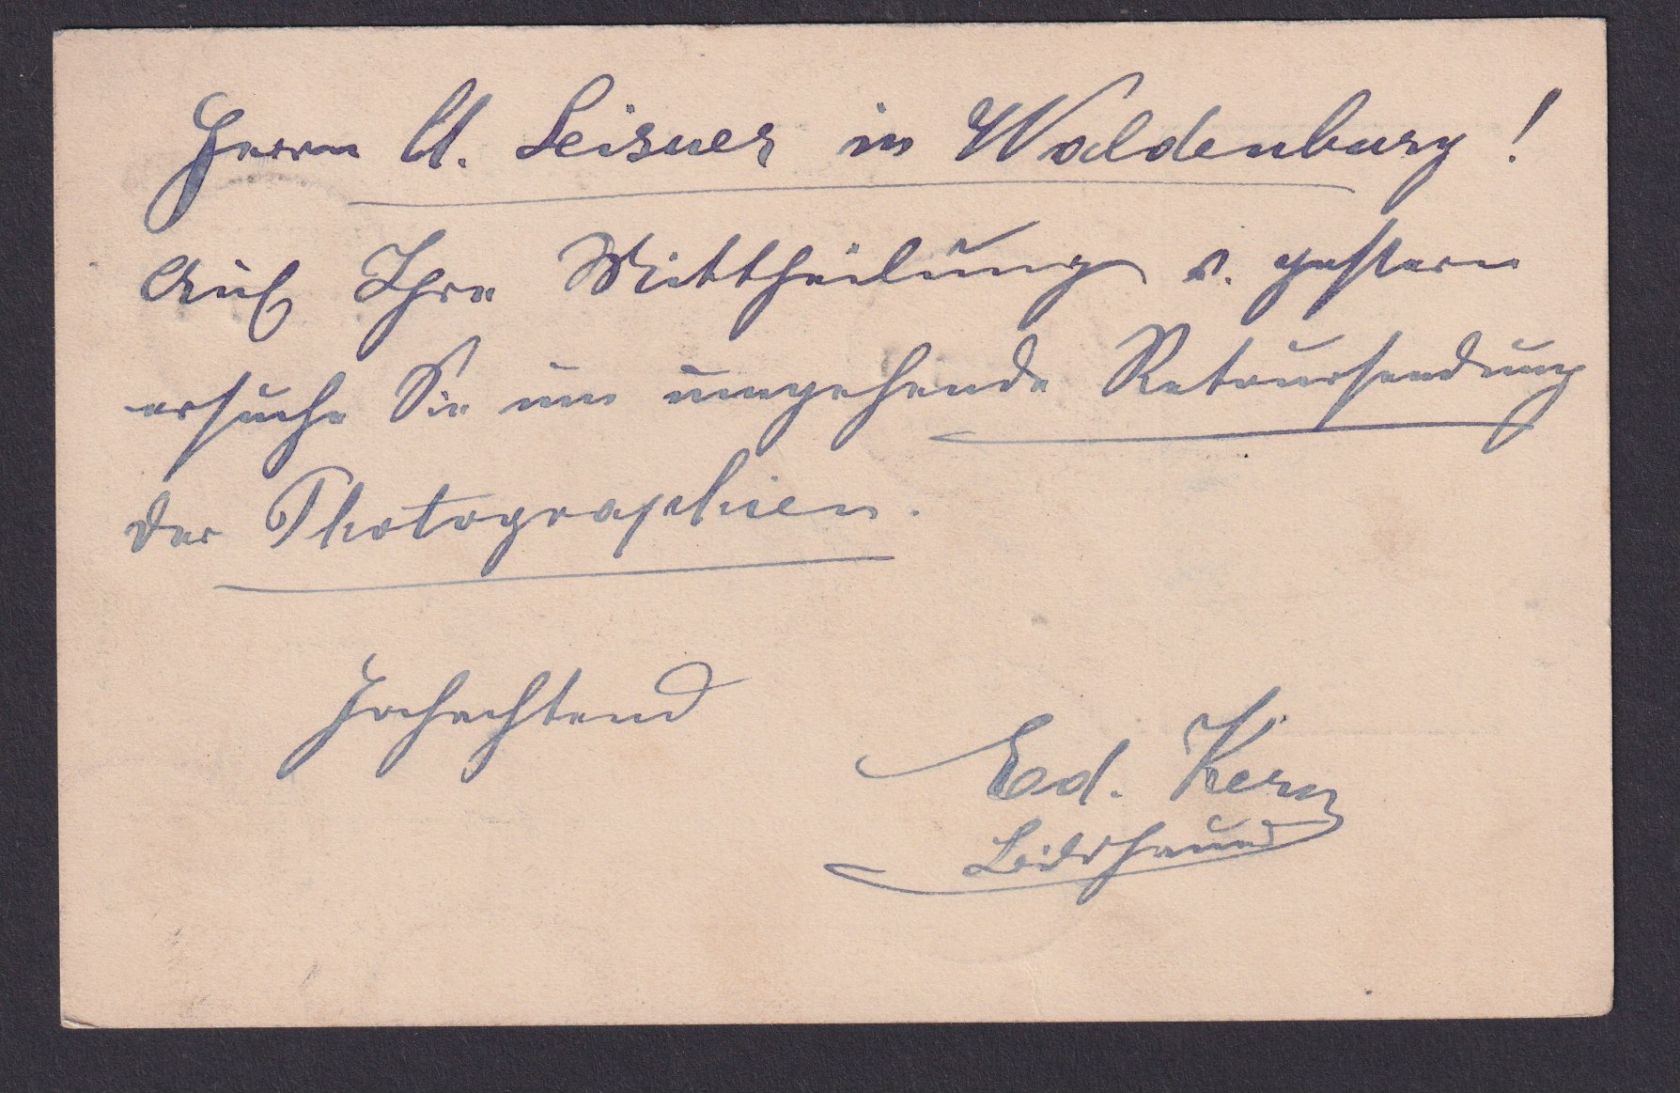 Herrn A. Leisner in Waldenburg!
Auf Ihre Mittheilung v. gestern
ersuche Sie um umgehende Retoursendung
der Photographien.
Hochachtend
Ed. Kern
Bildhauer